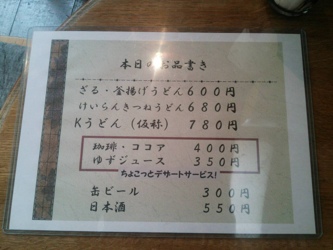 本日のお品書き
ざる・釜揚げうどん600円
けいらんきつねうどん680円
Kうどん(仮称) 780円
珈琲・ココア 400円
ゆずジュース 350円
ちょこっとデザートサービス!
缶ビール 300円
日本酒 550円